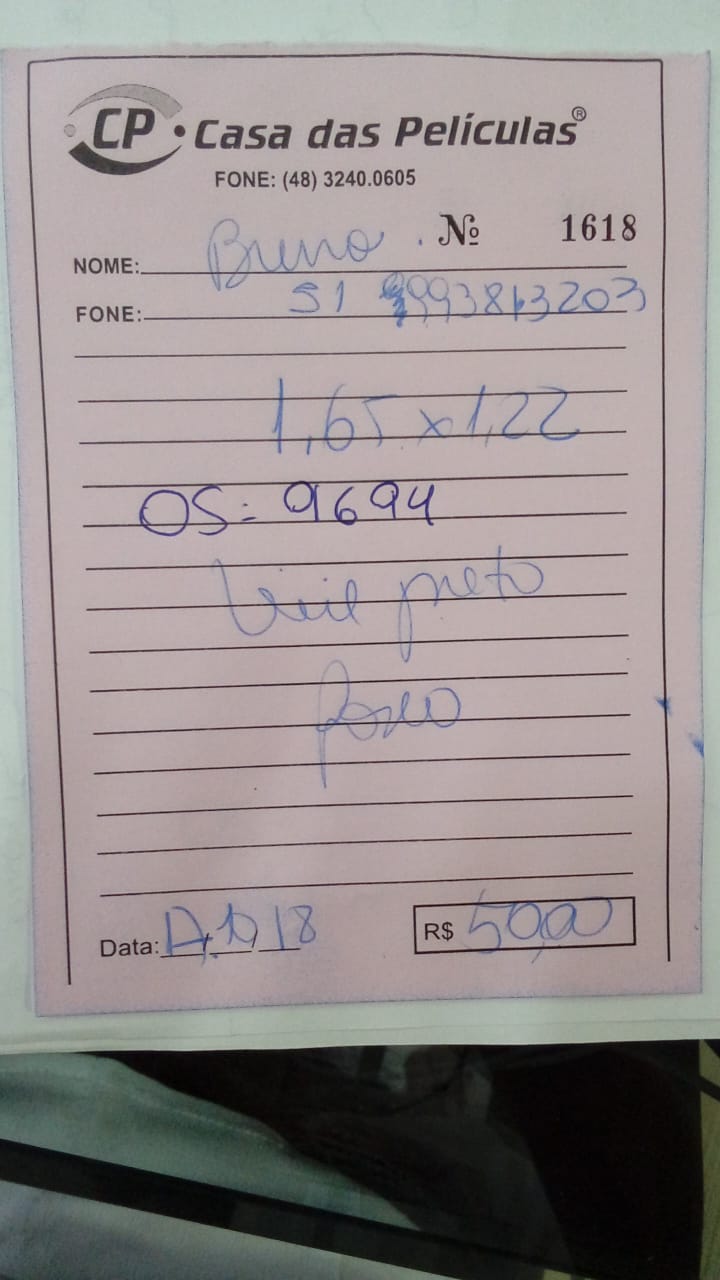 CP Casa das Películas®
FONE: (48) 3240.0605
Nº 1618
NOME: Bruno
FONE: 51
1,65 x 1,22
OS: 9694
preto
fosco
Data: 18
R$ 50,00